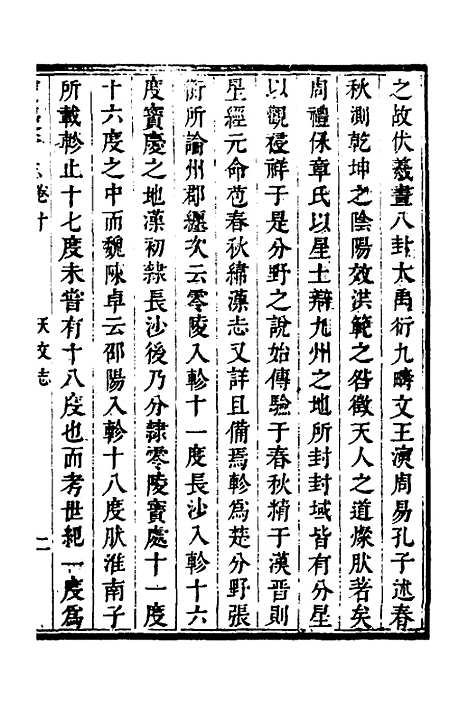 之故伏羲畫八卦大禹衍九疇文王演周易孔子述春
秋測乾坤之陰陽效洪範之咎徵天人之道燦肰著矣
周禮保章氏以星土辯九州之地所封封域皆有分星
以觀祲祥于是分野之說始傳驗于春秋精于漢晋則
星經元命苞春秋緯漢志又詳且備焉軫爲楚分野張
衡所論州郡躔次云零陵入軫十一度長沙入軫十六
度寶慶之地漢初隸長沙後乃分隸零陵寶慶十一度
十六度之中而魏陳卓云邵陽入軫十八度肰淮南子
所載軫止十七度未嘗有十八度也而考世紀一度爲
志卷十
天文志
二